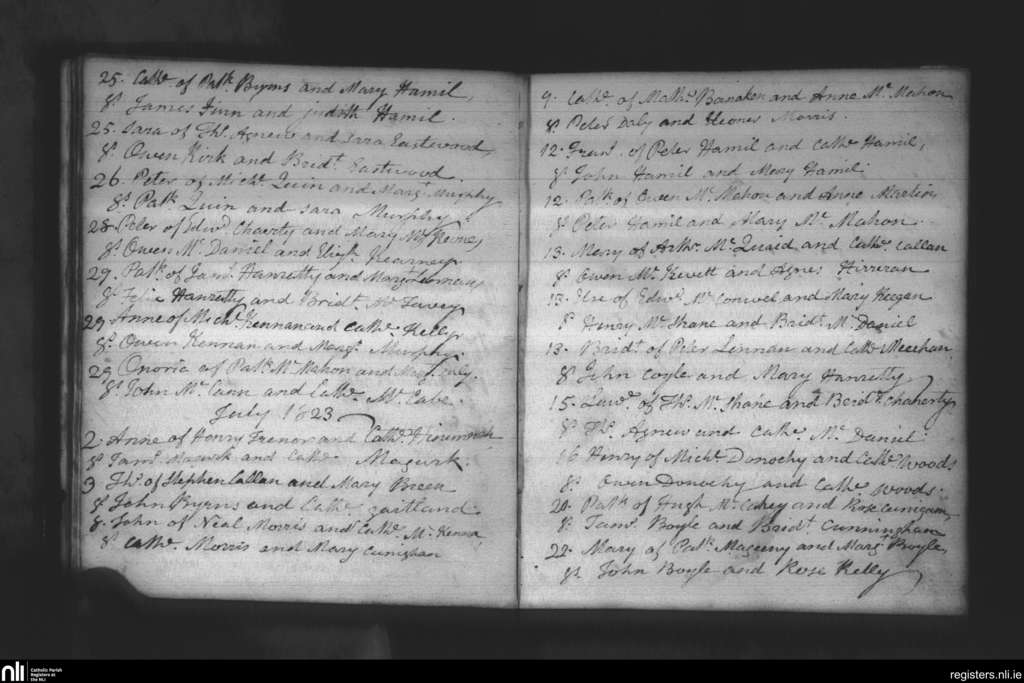 25. Cathe. of Patk. Byrns and Mary Hamil,
Ss. James Finn and Judith Hamil.
25. Sara of Ths. Agnew and Sara Eastwood,
Ss. Owen Kirk and Bridt. Eastwood.
26. Peter of Michl. Quin and Margt. Murphy
Ss. Patk. Quin and Sara Murphy.
28. Peter of Edwd. Chaerty and Mary
Ss. Owen Mc. Daniel and Elizh. Kearney
29. Patk. of Jams. Hanretty and Margt.
Ss. Felix Hanretty and Bridt. Mc.
29. Anne of Michl. Kennan and Cathe. Kelly
Ss. Owen Kennan and Margt. Murphy.
29. Onoria of Patk. Mc. Mahon and
Ss. John Mc. Cann and Cathe. Mc. Cabe.
July 1823
2. Anne of Henry Trenor and Cathe.
Ss. Jams. Magurk and Cathe. Magurk.
3 Ths. of Stephen Callan and Mary Breen
Ss. John Byrns and Cathe. Gartland
8. John of Neal Morris and Cathe. Mc. Kenna
Ss. Cathe. Morris and Mary Cunighan
9. Cathe. of Mathw. Banaken and Anne Mc. Mahon
Ss. Peter Daly and Eleoner Morris.
12. Frans. of Peter Hamil and Cathe. Hamil,
Ss. John Hamil and Mary Hamil
12. Patk. of Owen Mc. Mahon and Anne Martin
Ss. Peter Hamil and Mary Mc. Mahon
13. Mary of Arthr. Mc. Quaid and Cathe. Callan
Ss. Owen Mc. Kevett and Agnes
13. Else of Edwd. Mc. Conwel and Mary Keegan
Ss. Henry Mc. Shane and Bridt. Mc. Daniel
13. Bridt. of Peter Lennan and Cathe. Meehan.
Ss. John Coyle and Mary Hanretty
15. Lawe. of Ths. Mc. Shane and Bridt. Chaherty
Ss. Ths. Agnew and Cathe. Mc. Daniel
16 Henry of Michl. Donochy and Cathe. Woods
Ss. Owen Donochy and Cathe. Woods.
20. Patk. of Hugh Mc. Cahey and Rose Cunigam
Ss. Jams. Boyle and Bridt. Cunningham
22. Mary of Patk. Mageeny and Margt. Boyle,
Ss. John Boyle and Rose Kelly
nli
Catholic Parish
Registers at
the NLI
registers.nli.ie